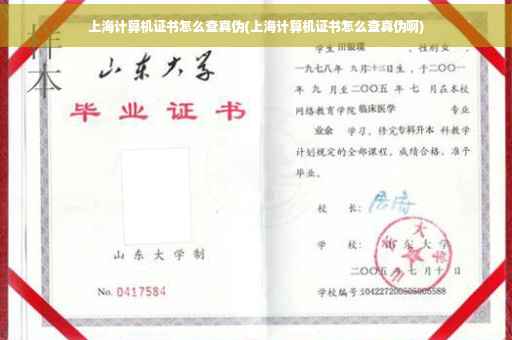 上海计算机证书怎么查真伪(上海计算机证书怎么查真伪啊)
样本
山东大学
毕业证书
山东大学制
No. 0417584
学生田银瑛 ，性别女 ，
一九七八年 九月十三日生，于二〇〇一
年 九 月至二〇〇五 年 七 月在本校
网络教育学院临床医学 专业
业余 学习，修完专科升本 科教学
计划规定的全部课程，成绩合格，准予
毕业。
校 长：
学 校：山东大学
二〇〇五 年 七 月 十 日
学校编号：104227200505005588